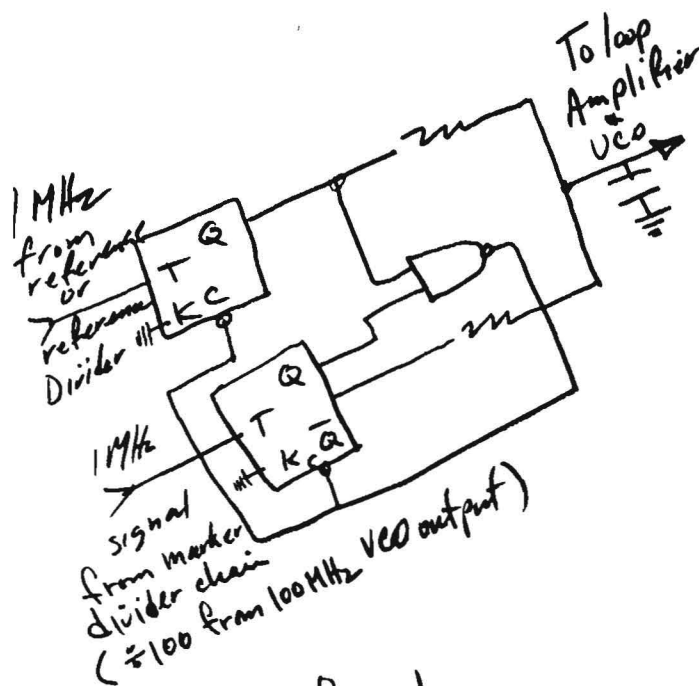 To loop
Amplifier
&
VCO
1 MHz
from
reference
or
reference
Divider
Q
T
K C
Q
T
K C Q̅
1 MHz
signal
from marker
divider chain
(÷100 from 100 MHz VCO output)